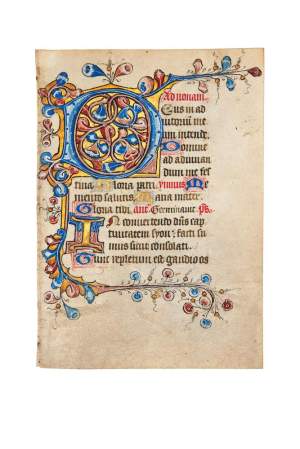 Ad nonam.
Deus in ad
iutoriū me
um intende.
Domine
ad adiuuan
dum me fes
tina. Gloria patri. ymnus. Me
mento salutis. Maria mater.
Gloria tibi. añe. Germinauit. p̄s.
In conuertendo dn̄s cap
tiuitatem syon: facti su
mus sicut consolati.
Tunc repletum est gaudio os